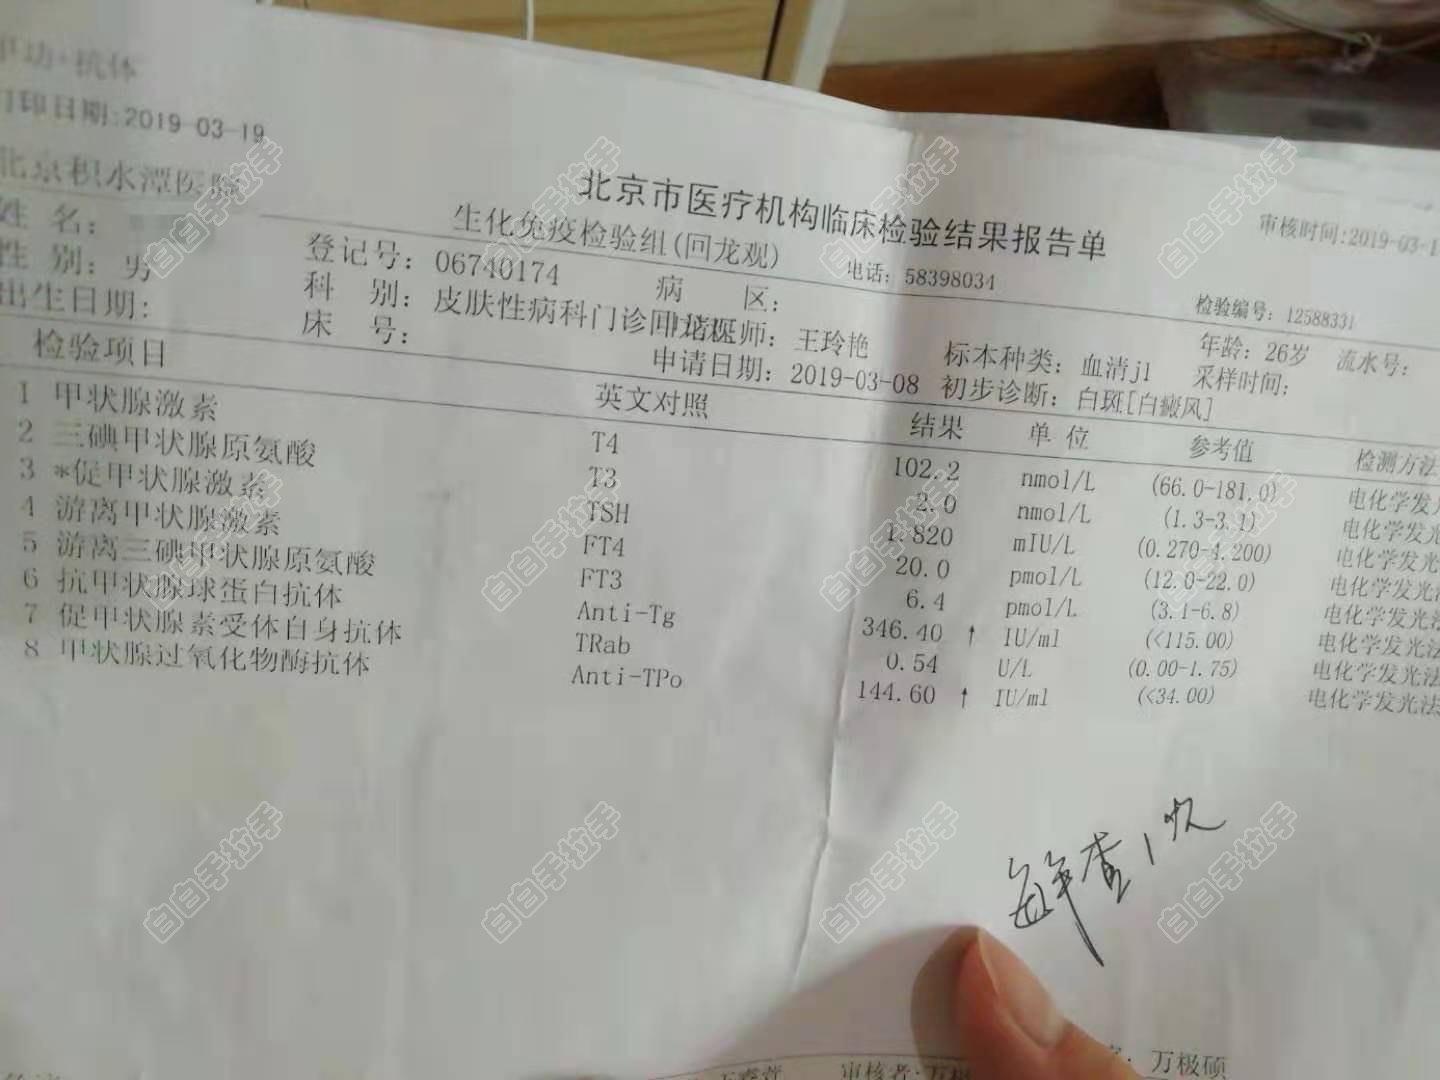 甲功·抗体
打印日期:2019-03-19
北京积水潭医院
北京市医疗机构临床检验结果报告单
审核时间:2019-03-1
生化免疫检验组(回龙观)
电话: 58398034
检验编号: 12588331
姓 名:
登记号: 06740174
病 区:
年龄: 26岁
流水号:
性 别: 男
科 别: 皮肤性病科门诊回龙观
医师: 王玲艳
标本种类: 血清j1
采样时间:
出生日期:
床 号:
申请日期: 2019-03-08
初步诊断: 白斑[白癜风]
检验项目 英文对照 结果 单 位 参考值 检测方法
1 甲状腺激素 T4 102.2 nmol/L (66.0-181.0) 电化学发光
2 三碘甲状腺原氨酸 T3 2.0 nmol/L (1.3-3.1) 电化学发光
3 *促甲状腺激素 TSH 1.820 mIU/L (0.270-4.200) 电化学发光
4 游离甲状腺激素 FT4 20.0 pmol/L (12.0-22.0) 电化学发光法
5 游离三碘甲状腺原氨酸 FT3 6.4 pmol/L (3.1-6.8) 电化学发光法
6 抗甲状腺球蛋白抗体 Anti-Tg 346.40 ↑ IU/ml (<115.00) 电化学发光法
7 促甲状腺素受体自身抗体 TRab 0.54 U/L (0.00-1.75) 电化学发光法
8 甲状腺过氧化物酶抗体 Anti-TPo 144.60 ↑ IU/ml (<34.00) 电化学发光法
每年查1次
审核者:万极
万极硕
白白手拉手
白白手拉手
白白手拉手
白白手拉手
白白手拉手
白白手拉手
白白手拉手
白白手拉手
白白手拉手
白白手拉手
白白手拉手
白白手拉手